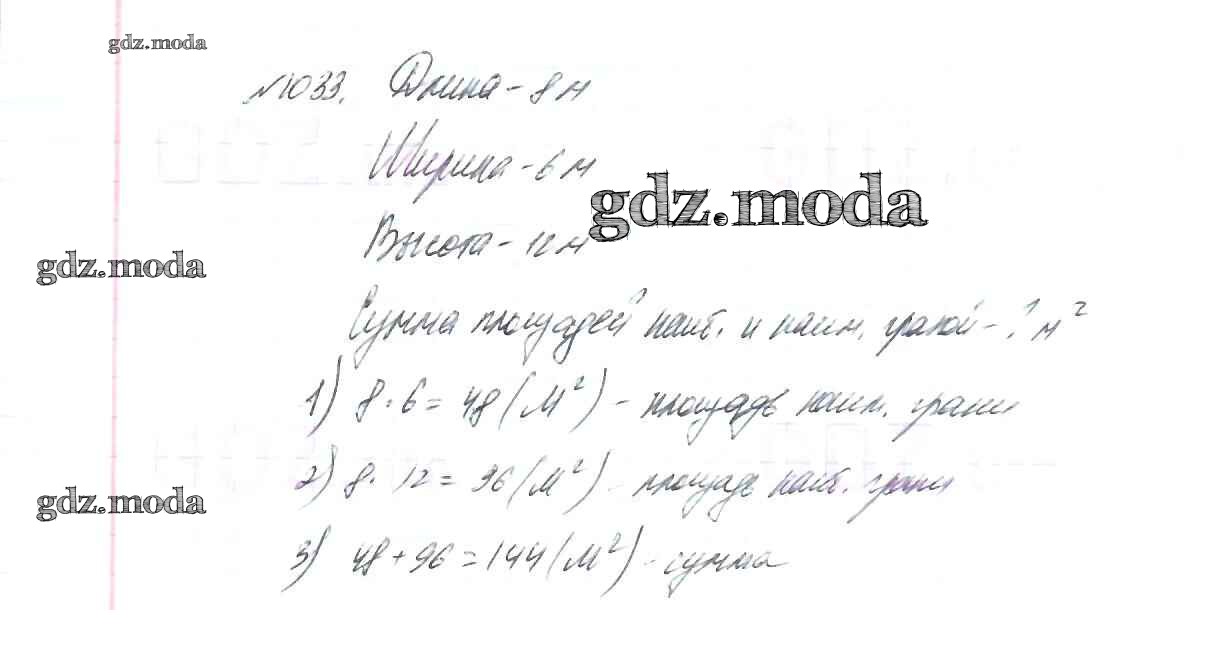 gdz.moda
№1033. Длина - 8 м
Ширина - 6 м
gdz.moda
Высота - 12 м
gdz.moda
Сумма площадей наиб. и наим. граней - ? м²
1) 8 · 6 = 48 (м²) - площадь наим. грани
2) 8 · 12 = 96 (м²) - площадь наиб. грани
gdz.moda
3) 48 + 96 = 144 (м²) - сумма